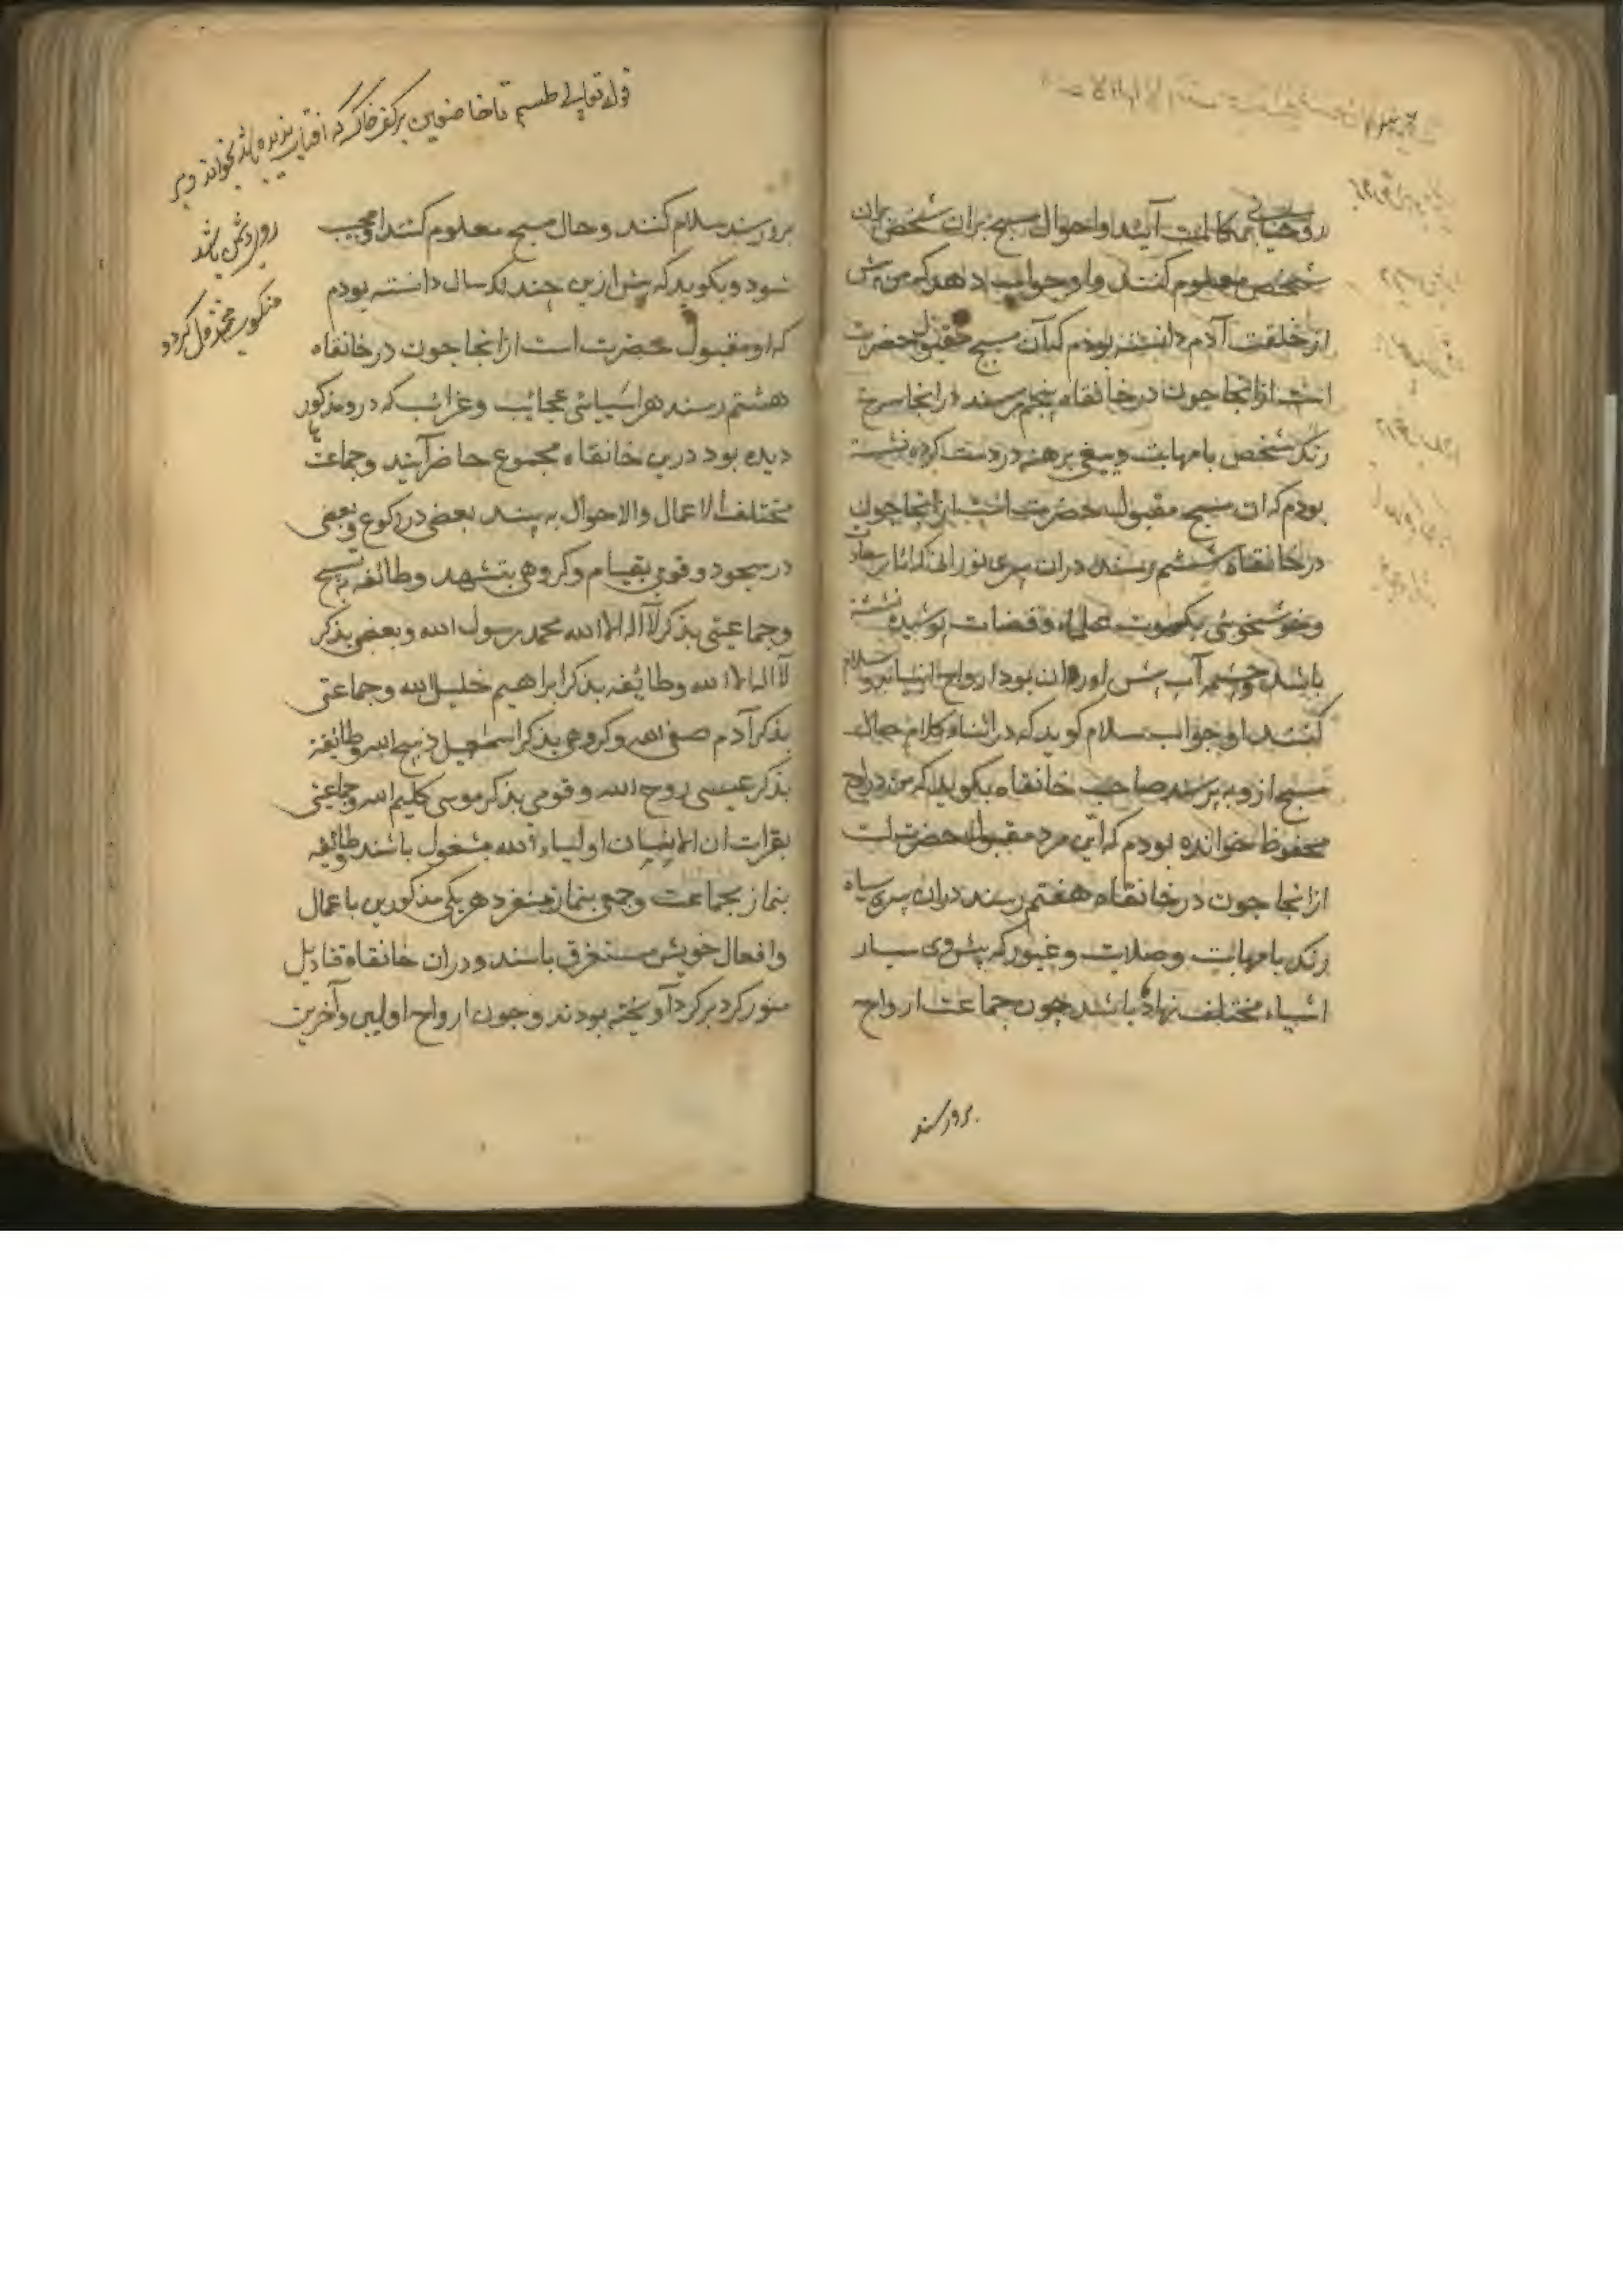 روحیانی بمکالمت آیند و احوال مسبح بران شخص بران
شخص معلوم کنند و او جواب دهد که من پیش
از خلقت آدم دانسته بودم که آن مسبح مقبول حضرت
است از انجا چون در خانقاه پنجم رسند در انجا سرخ
رنک شخص با مهابت و تیغی برهنه در دست کرده نشسته
بودم که ان مسبح مقبول حضرت است از انجا چون
در خانقاه ششم رسند دران پیری نورانی که اثار سعادت
و خوش خوئی بکسوت علماء و قضات پوشیده نشسته
باشد و چشمه آب پیش او روان بود ارواح انبیا برو سلام
کنند او جواب سلام کوید که در اثناء کلام حال
مسبح از وی پرسند صاحب خانقاه بکوید که من در لوح
محفوظ خوانده بودم که این مرد مقبول حضرت است
از انجا چون در خانقاه هفتم رسند دران پیری سیاه
رنک با مهابت و صلابت و غیور که پیش وی بسیار
اشیاء مختلف نهاده باشد چون جماعت ارواح
برو رسند
قوله تعالی طسم تا خاضعین بر کف خاک که افتاب ندیده باشد بخواند و بر
روی دشمن پاشد
منکوب و مخذول کردد
برو رسند سلام کنند و حال مسبح معلوم کنند او مجیب
شود و بکوید که پیش ازین چند لک سال دانسته بودم
که او مقبول حضرت است از انجا چون در خانقاه
هشتم رسند هر اشیائی عجائب و غرائب که در و مذکور
دیده بود درین خانقاه مجموع حاضر آیند و جماعتها
مختلف الاعمال والاحوال به بیند بعضی در رکوع و بعضی
در سجود و قومی بقیام و کروهی بتشهد و طائفه به تسبیح
و جماعتی بذکر لآ اله الا الله محمد رسول الله و بعضی بذکر
لآ اله الا الله و طائفه بذکر ابراهیم خلیل الله و جماعتی
بذکر آدم صفی الله و کروهی بذکر اسمعیل ذبیح الله و طائفة
بذکر عیسی روح الله و قومی بذکر موسی کلیم الله و جماعتی
بقرات ان الا ان اولیاء الله مشغول باشند و طائفه
بنماز بجماعت و جمعی بنماز منفرد هر یکی مذکورین باعمال
و افعال خویش مستغرق باشند و دران خانقاه قنادیل
منور کرد بر کرد آویخته بودند و چون ارواح اولین و آخرین